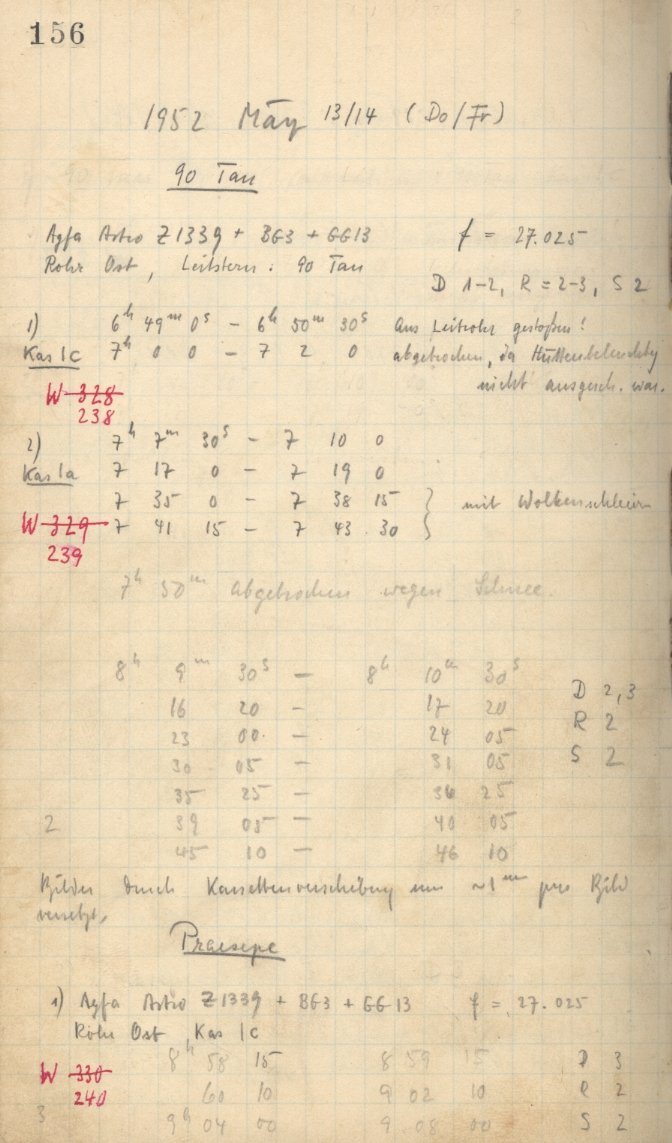 156
1952 März 13/14 (Do/Fr)
90 Tau
Agfa Astro Z1339 + BG3 + GG13 f = 27.025
Rohr Ost, Leitstern: 90 Tau
D 1-2, R = 2-3, S 2
1) 6h 49m 0s - 6h 50m 30s Ans Leitrohr gestoßen!
Kas 1c 7h 0 0 - 7 2 0 abgebrochen, da Hüttenbeleuchtg
nicht ausgesch. war.
W 328
238
2) 7h 7m 30s - 7 10 0
Kas 1a 7 17 0 - 7 19 0
7 35 0 - 7 38 15 } mit Wolkenschleiern
W 329 7 41 15 - 7 43 30 }
239
7h 50m abgebrochen wegen Schnee.
8h 9m 30s - 8h 10m 30s
D 2,3
16 20 - 17 20
R 2
23 00 - 24 05
30 05 - 31 05 S 2
35 25 - 36 25
2 39 05 - 40 05
45 10 - 46 10
Bilder durch Kassettenverschiebung um ~1 mm pro Bild
versetzt.
Praesepe
1) Agfa Astro Z1339 + BG3 + GG13 f = 27.025
Rohr Ost, Kas 1c
8h 58 15 8 59 15 D 3
W 330
240 60 10 9 02 10 R 2
3 9h 04 00 9 08 00 S 2